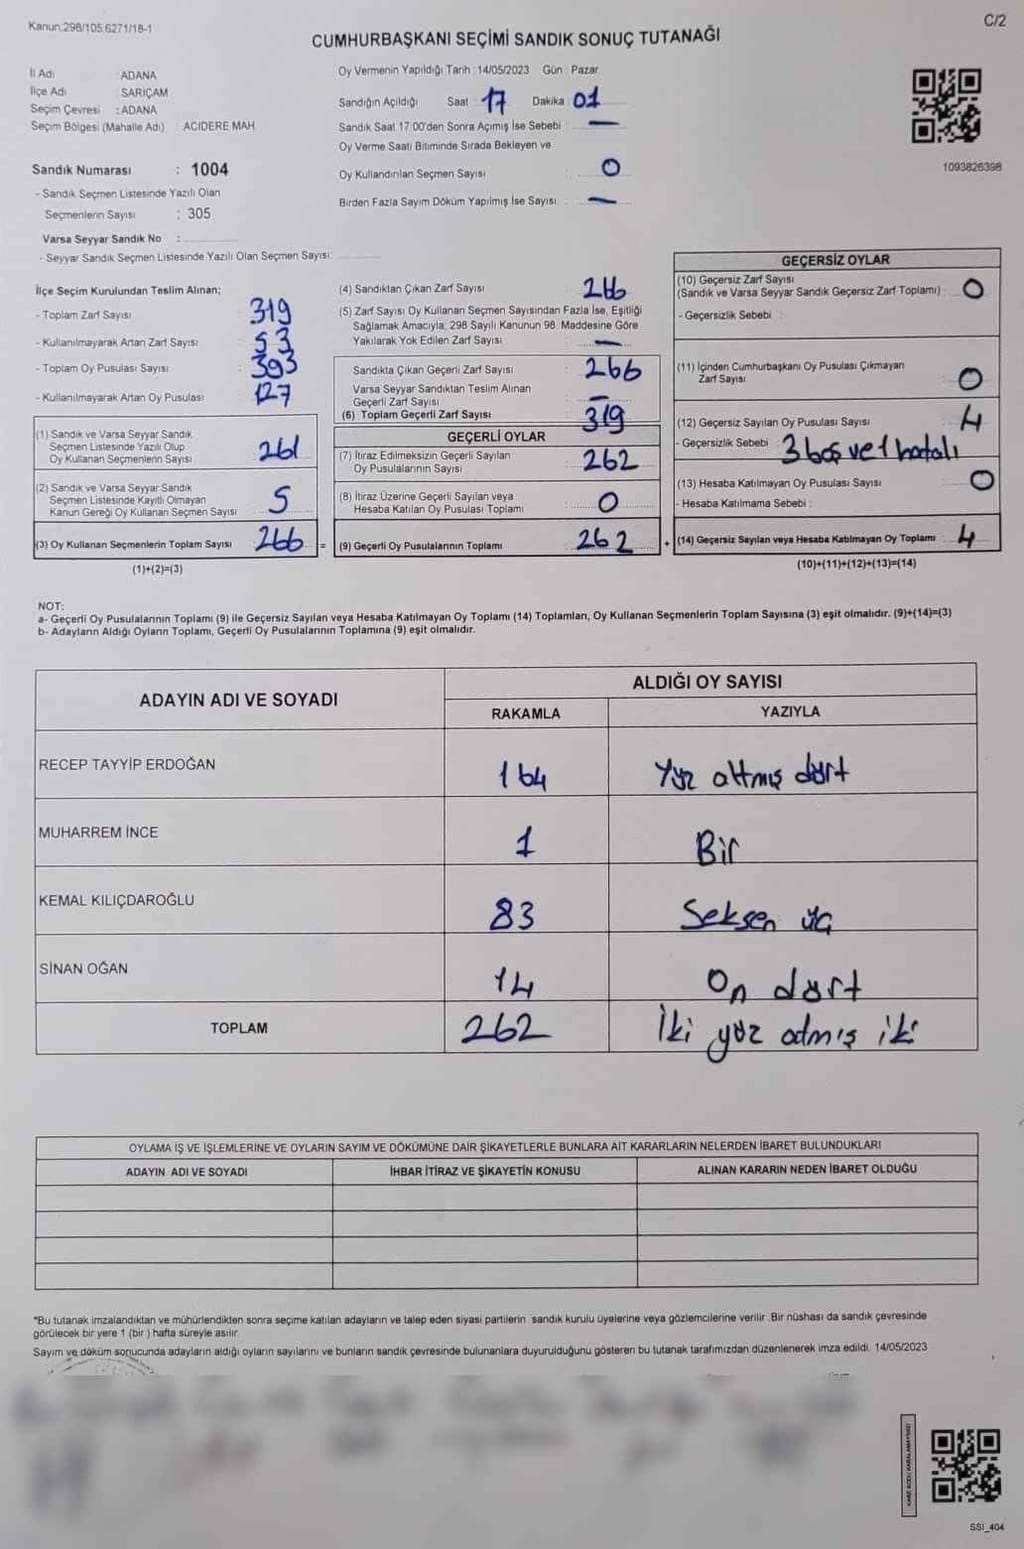 Kanun:298/105,6271/18-1
C/2
CUMHURBAŞKANI SEÇİMİ SANDIK SONUÇ TUTANAĞI
İl Adı ADANA
İlçe Adı SARIÇAM
Seçim Çevresi :ADANA
Seçim Bölgesi (Mahalle Adı) ACIDERE MAH.
Oy Vermenin Yapıldığı Tarih :14/05/2023 Gün : Pazar
Sandığın Açıldığı Saat 17 Dakika 01
Sandık Saat 17.00'den Sonra Açılmış İse Sebebi —
Oy Verme Saati Bitiminde Sırada Bekleyen ve
Oy Kullandırılan Seçmen Sayısı : 0
Birden Fazla Sayım Döküm Yapılmış İse Sayısı —
1093826398
Sandık Numarası : 1004
- Sandık Seçmen Listesinde Yazılı Olan
Seçmenlerin Sayısı : 305
Varsa Seyyar Sandık No :
- Seyyar Sandık Seçmen Listesinde Yazılı Olan Seçmen Sayısı:
İlçe Seçim Kurulundan Teslim Alınan;
- Toplam Zarf Sayısı 319
- Kullanılmayarak Artan Zarf Sayısı 53
- Toplam Oy Pusulası Sayısı 393
- Kullanılmayarak Artan Oy Pusulası 127
(1) Sandık ve Varsa Seyyar Sandık
Seçmen Listesinde Yazılı Olup
Oy Kullanan Seçmenlerin Sayısı 261
(2) Sandık ve Varsa Seyyar Sandık
Seçmen Listesinde Kayıtlı Olmayan
Kanun Gereği Oy Kullanan Seçmen Sayısı 5
(3) Oy Kullanan Seçmenlerin Toplam Sayısı 266 =
(1)+(2)=(3)
(4) Sandıktan Çıkan Zarf Sayısı 266
(5) Zarf Sayısı Oy Kullanan Seçmen Sayısından Fazla İse, Eşitliği
Sağlamak Amacıyla, 298 Sayılı Kanunun 98. Maddesine Göre
Yakılarak Yok Edilen Zarf Sayısı : —
Sandıkta Çıkan Geçerli Zarf Sayısı : 266
Varsa Seyyar Sandıktan Teslim Alınan
Geçerli Zarf Sayısı : —
(6) Toplam Geçerli Zarf Sayısı : 319
GEÇERLİ OYLAR
(7) İtiraz Edilmeksizin Geçerli Sayılan
Oy Pusulalarının Sayısı : 262
(8) İtiraz Üzerine Geçerli Sayılan veya
Hesaba Katılan Oy Pusulası Toplamı : 0
(9) Geçerli Oy Pusulalarının Toplamı : 262 +
GEÇERSİZ OYLAR
(10) Geçersiz Zarf Sayısı
(Sandık ve Varsa Seyyar Sandık Geçersiz Zarf Toplamı) : 0
- Geçersizlik Sebebi :
(11) İçinden Cumhurbaşkanı Oy Pusulası Çıkmayan
Zarf Sayısı 0
(12) Geçersiz Sayılan Oy Pusulası Sayısı 4
- Geçersizlik Sebebi : 3 boş ve 1 hatalı
(13) Hesaba Katılmayan Oy Pusulası Sayısı 0
- Hesaba Katılmama Sebebi :
(14) Geçersiz Sayılan veya Hesaba Katılmayan Oy Toplamı 4
(10)+(11)+(12)+(13)=(14)
NOT:
a- Geçerli Oy Pusulalarının Toplamı (9) ile Geçersiz Sayılan veya Hesaba Katılmayan Oy Toplamı (14) Toplamları, Oy Kullanan Seçmenlerin Toplam Sayısına (3) eşit olmalıdır. (9)+(14)=(3)
b- Adayların Aldığı Oyların Toplamı, Geçerli Oy Pusulalarının Toplamına (9) eşit olmalıdır.
ADAYIN ADI VE SOYADI
ALDIĞI OY SAYISI
RAKAMLA YAZIYLA
RECEP TAYYİP ERDOĞAN 164 Yüz altmış dört
MUHARREM İNCE 1 Bir
KEMAL KILIÇDAROĞLU 83 Seksen üç
SİNAN OĞAN 14 On dört
TOPLAM 262 İki yüz atmış iki
OYLAMA İŞ VE İŞLEMLERİNE VE OYLARIN SAYIM VE DÖKÜMÜNE DAİR ŞİKAYETLERLE BUNLARA AİT KARARLARIN NELERDEN İBARET BULUNDUKLARI
ADAYIN ADI VE SOYADI İHBAR İTİRAZ VE ŞİKAYETİN KONUSU ALINAN KARARIN NEDEN İBARET OLDUĞU
*Bu tutanak imzalandıktan ve mühürlendikten sonra seçime katılan adayların ve talep eden siyasi partilerin sandık kurulu üyelerine veya gözlemcilerine verilir. Bir nüshası da sandık çevresinde
görülecek bir yere 1 (bir ) hafta süreyle asılır.
Sayım ve döküm sonucunda adayların aldığı oyların sayılarını ve bunların sandık çevresinde bulunanlara duyurulduğunu gösteren bu tutanak tarafımızdan düzenlenerek imza edildi. 14/05/2023
KARE KODU KARALAMAYINIZ!
SSI_404